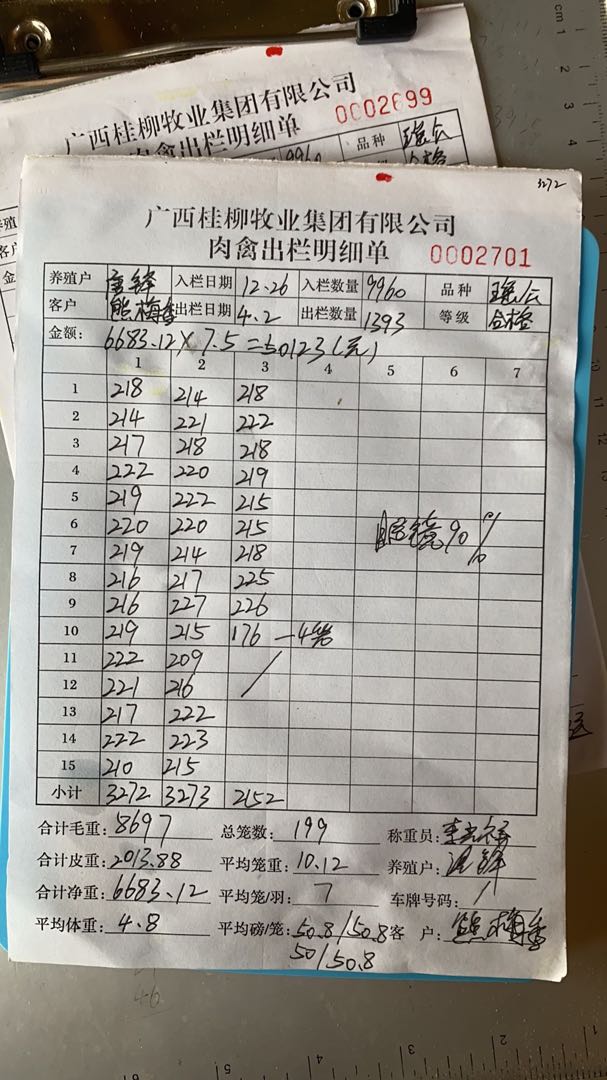 广西桂柳牧业集团有限公司
肉禽出栏明细单 0002699
9960 品种 瑶公
合格
3272
广西桂柳牧业集团有限公司
肉禽出栏明细单 0002701
养殖户 入栏日期 12.26 入栏数量 9960 品种 瑶公
客户 熊梅香 出栏日期 4.2 出栏数量 1393 等级 合格
金额: 6683.12×7.5=50123(元)
1 2 3 4 5 6 7
1 218 214 218
2 214 221 222
3 217 218 218
4 222 220 219
5 219 222 215
6 220 220 215 眼镜90%
7 219 214 218
8 216 217 225
9 216 227 226
10 219 215 176 —4笼
11 222 209 /
12 221 216
13 217 222
14 222 223
15 210 215
小计 3272 3273 2152
合计毛重: 8697 总笼数: 199 称重员:
合计皮重: 2013.88 平均笼重: 10.12 养殖户:
合计净重: 6683.12 平均笼/羽: 7 车牌号码: /
平均体重: 4.8 平均磅/笼: 50.8/50.8 客户: 熊梅香
50/50.8